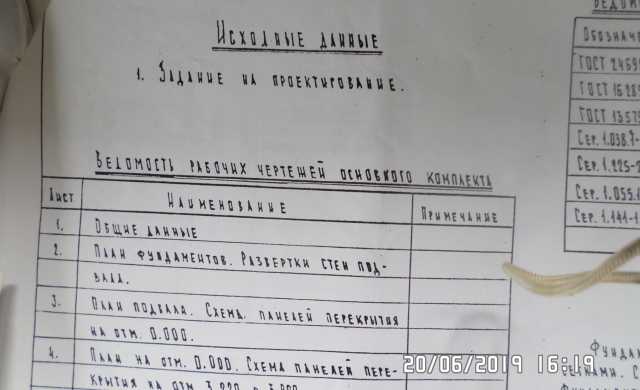 Исходные данные
1. Задание на проектирование.
Ведомость рабочих чертежей основного комплекта
Лист Наименование Примечание
1. Общие данные
2. План фундаментов. Развертки стен под-
вала.
3. План подвала. Схема панелей перекрытия
на отм. 0.000.
4. План на отм. 0.000. Схема панелей пере-
крытия на отм.
ГОСТ
ГОСТ
ГОСТ
Сер. 1.038.
Сер. 1.225-
Сер. 1.055.1
Сер. 1.141-1
20/06/2019 16:19